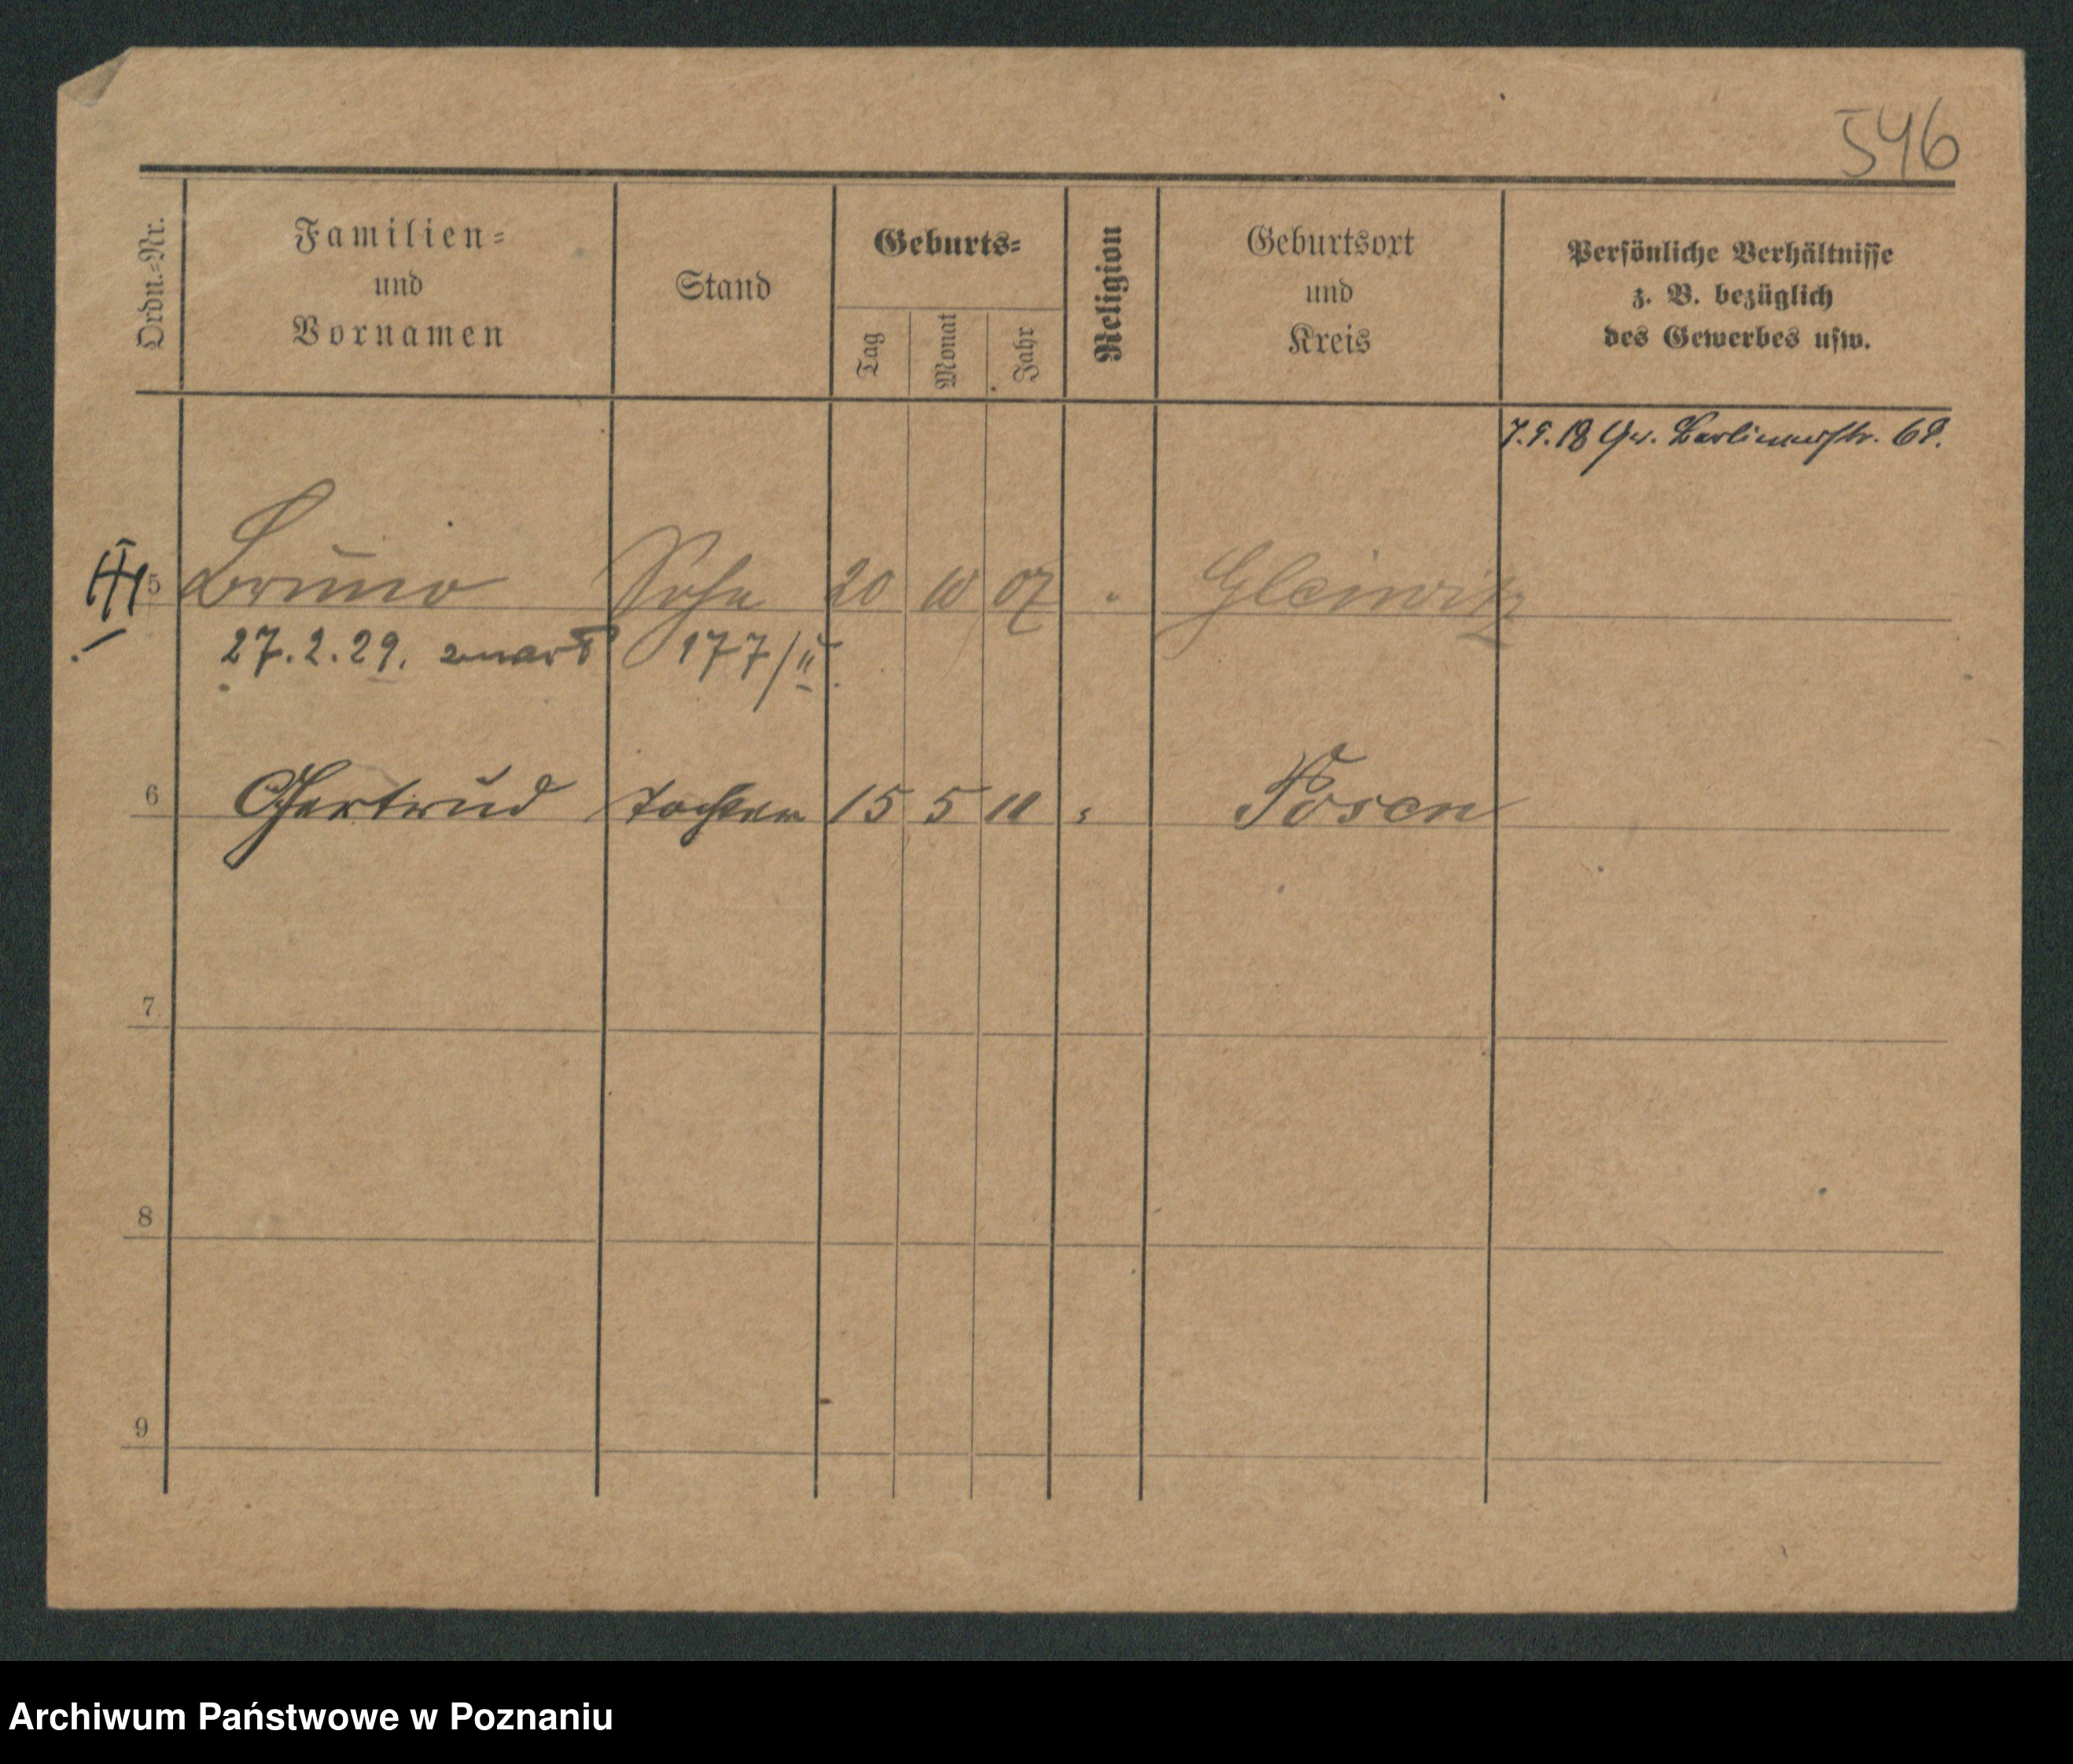 546
Ordn.=Nr.
Familien=
und
Vornamen
Stand
Geburts=
Tag
Monat
Jahr
Religion
Geburtsort
und
Kreis
Persönliche Verhältnisse
z. B. bezüglich
des Gewerbes usw.
7.9.18 Gr. Berlinerstr. 69.
5 Bruno Sohn 20 10 07 Gleiwitz
27.2.29. zmarł 177/II.
6 Gertrud Tochter 15 5 11 " Posen
7
8
9
Archiwum Państwowe w Poznaniu